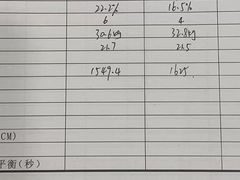 22.2% 16.5%
6 4
30.6kg 32.8kg
21.7 21.5
1549.4 1625
CM)
平衡(秒)